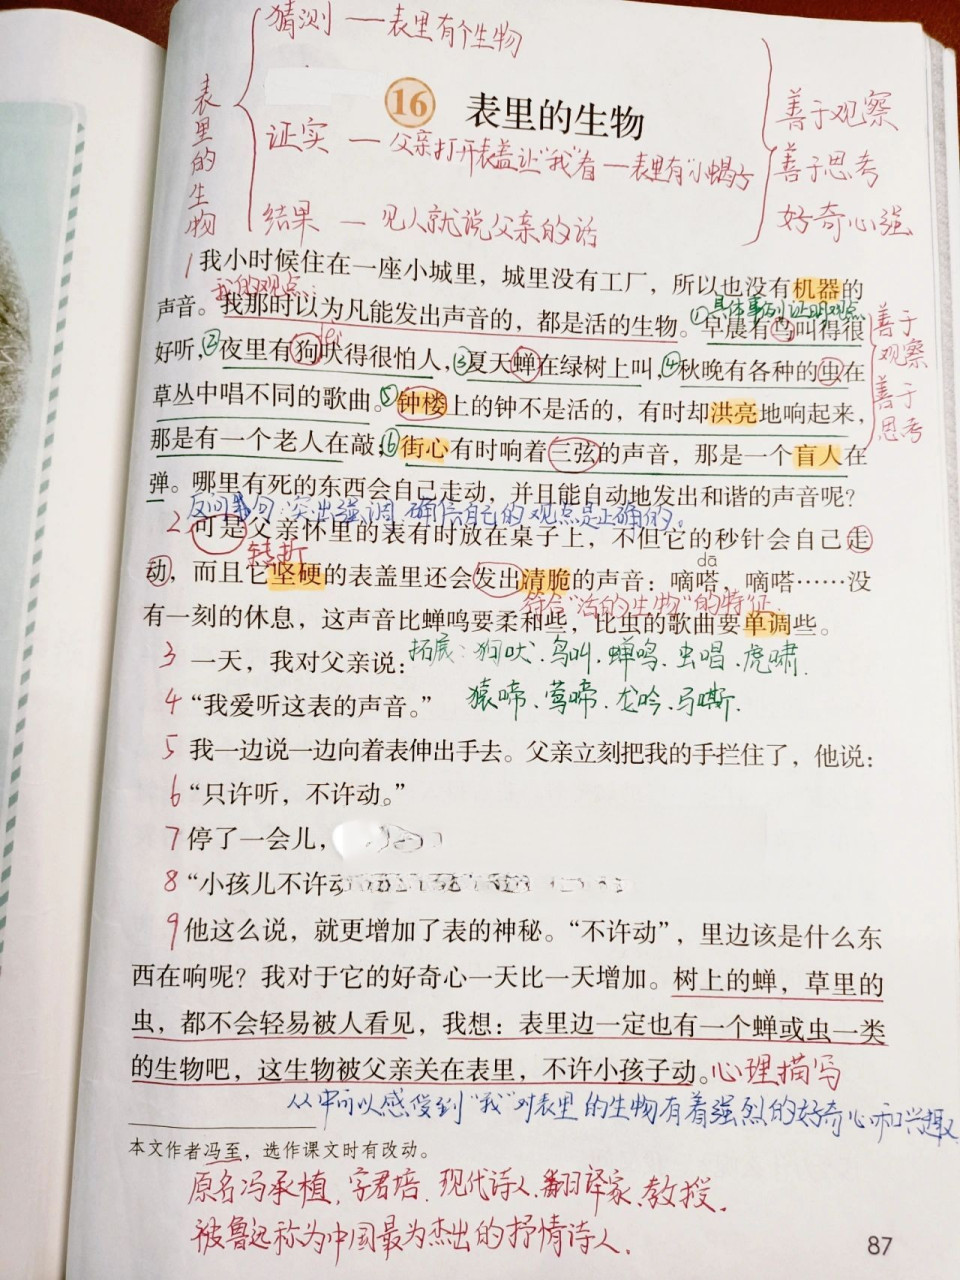 猜测 — 表里有个生物
表里的生物
16 表里的生物
证实 — 父亲打开表盖让“我”看 — 表里有“小蝎子
结果 — 见人就说父亲的话
善于观察
善于思考
好奇心强
1 我小时候住在一座小城里，城里没有工厂，所以也没有机器的
我的观点：
①具体事例证明观点
声音。我那时以为凡能发出声音的，都是活的生物。早晨有鸟叫得很
fèi
好听，②夜里有狗吠得很怕人，③夏天蝉在绿树上叫，④秋晚有各种的虫在
草丛中唱不同的歌曲。⑤钟楼上的钟不是活的，有时却洪亮地响起来，
那是有一个老人在敲；⑥街心有时响着三弦的声音，那是一个盲人在
善于
观察
善于
思考
弹。哪里有死的东西会自己走动，并且能自动地发出和谐的声音呢？
反问句：突出强调 确信自己的观点是正确的。
2 可是父亲怀里的表有时放在桌子上，不但它的秒针会自己走
转折
dā
动，而且它坚硬的表盖里还会发出清脆的声音：嘀嗒，嘀嗒……没
符合“活的生物”的特征
有一刻的休息，这声音比蝉鸣要柔和些，比虫的歌曲要单调些。
3 一天，我对父亲说：
拓展：狗吠、鸟叫、蝉鸣、虫唱、虎啸
4 “我爱听这表的声音。”
猿啼、莺啼、龙吟、马嘶.
5 我一边说一边向着表伸出手去。父亲立刻把我的手拦住了，他说：
6 “只许听，不许动。”
7 停了一会儿，
8 “小孩儿不许动
9 他这么说，就更增加了表的神秘。“不许动”，里边该是什么东
西在响呢？我对于它的好奇心一天比一天增加。树上的蝉，草里的
虫，都不会轻易被人看见，我想：表里边一定也有一个蝉或虫一类
的生物吧，这生物被父亲关在表里，不许小孩子动。心理描写
从中可以感受到“我”对表里的生物有着强烈的好奇心和兴趣
本文作者冯至，选作课文时有改动。
原名冯承植，字君培，现代诗人、翻译家、教授，
被鲁迅称为中国最为杰出的抒情诗人.
87